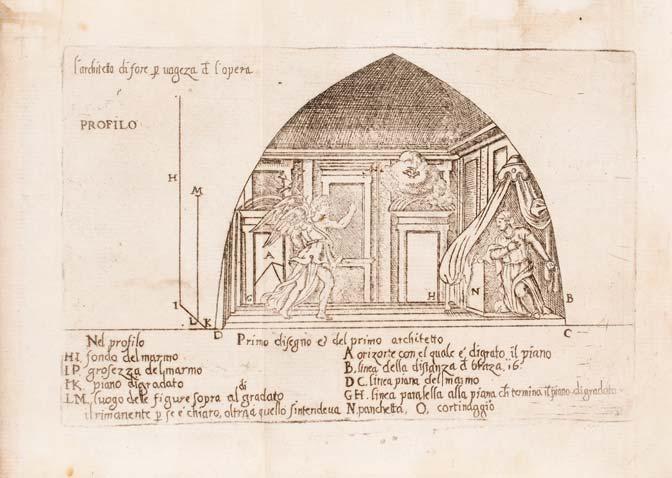 l'architetto di fore ꝑ uageza đ l'opera
PROFILO
H
M
I
L K
D
A
G
H
N
B
C
Nel profilo
HI. fondo del marmo
IP. grosezza del marmo
IK. piano digradato
di
LM. luogo delle figure sopra al gradato
Primo disegno e' del primo architetto
A orizonte con el quale e' digrato il piano
B. linea della distanza đ braza. 16.
DC. linea piana del marmo
GH. linea paralella alla piana ch termina il piano digradato
il rimanente ꝑ se e' chiaro, oltra a quello sintendeua N. panchetta, O. cortinaggio